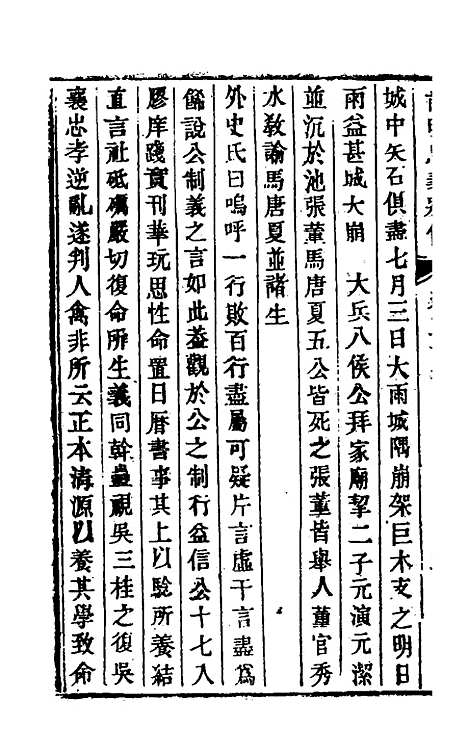 城中矢石俱盡七月三日大雨城隅崩架巨木支之明日
雨益甚城大崩　大兵入侯公拜家廟挈二子元演元潔
並沉於池張董馬唐夏五公皆死之張董皆舉人董官秀
水敎諭馬唐夏並諸生
外史氏曰嗚呼一行敗百行盡屬可疑片言虛千言盡爲
餙說公制義之言如此葢觀於公之制行益信公十七入
膠庠踐實刊華玩思性命置日曆書事其上以騐所養結
直言社砥礪嚴切復命所生義同幹蠱視吳三桂之復吳
襄忠孝逆亂遂判人禽非所云正本清源以養其學致命